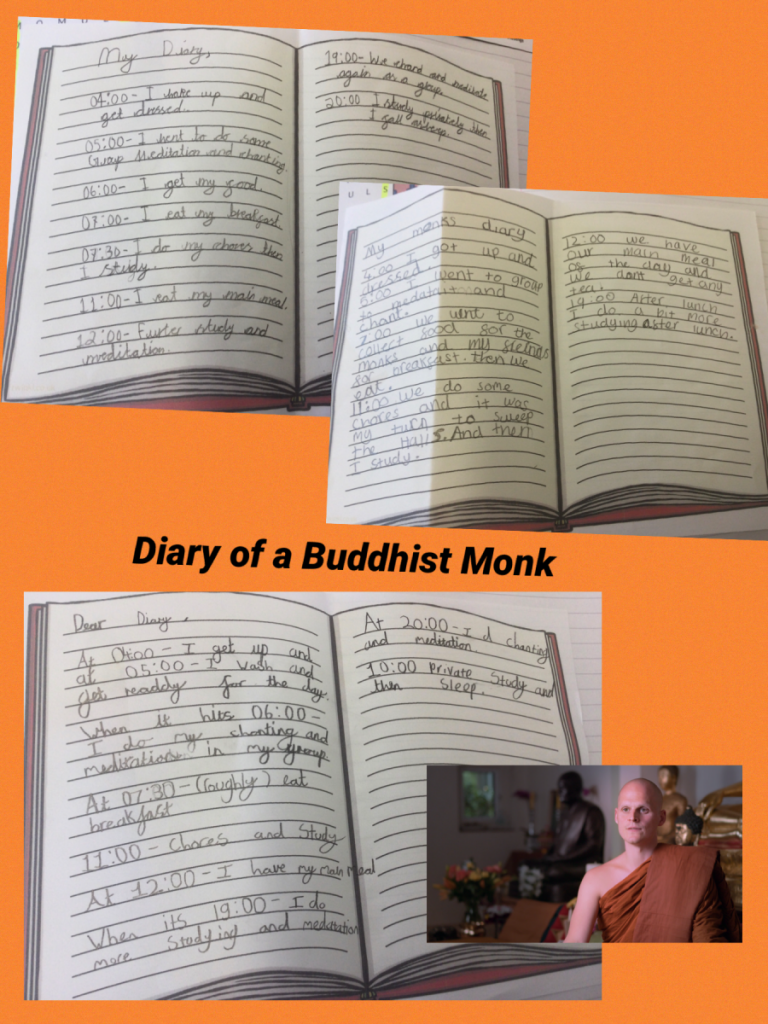 My Diary,
04:00 - I wake up and
get dressed.
05:00 - I went to do some
Group Meditation and chanting.
06:00 - I get my food.
07:00 - I eat my breakfast.
07:30 - I do my chores then
I study.
11:00 - I eat my main meal.
12:00 - Furter study and
meditation.
19:00 - We chant and meditate
again as a group.
20:00 I study privately then
I fall asleep.
U L S
My monks diary
4:00 I got up and
dressed. I went to group
5:00
to medatait and
chant. We went to
7:00
collect food for the
monks and my freinds
for breakfast. then we
eat.
11:00 We do some
chores and it was
my turn to sweep
the Halls. And then
I study.
12:00 we have
our main meal
of the day and
we dont get any
tea.
19:00 After lunch
I do a bit more
studying after lunch.
Diary of a Buddhist Monk
Dear Diary,
At 04:00 - I get up and
at 05:00 - I wash and
get readdy for the day.
When it hits 06:00 -
I do my chanting and
meditation in my group.
At 07:30 - (roughly) eat
breakfast
11:00 - Chores and Study
At 12:00 - I have my main meal
When its 19:00 - I do
more studying and medatation
At 20:00 - I d chanting
and meditation.
10:00 Private Study and
then Sleep.